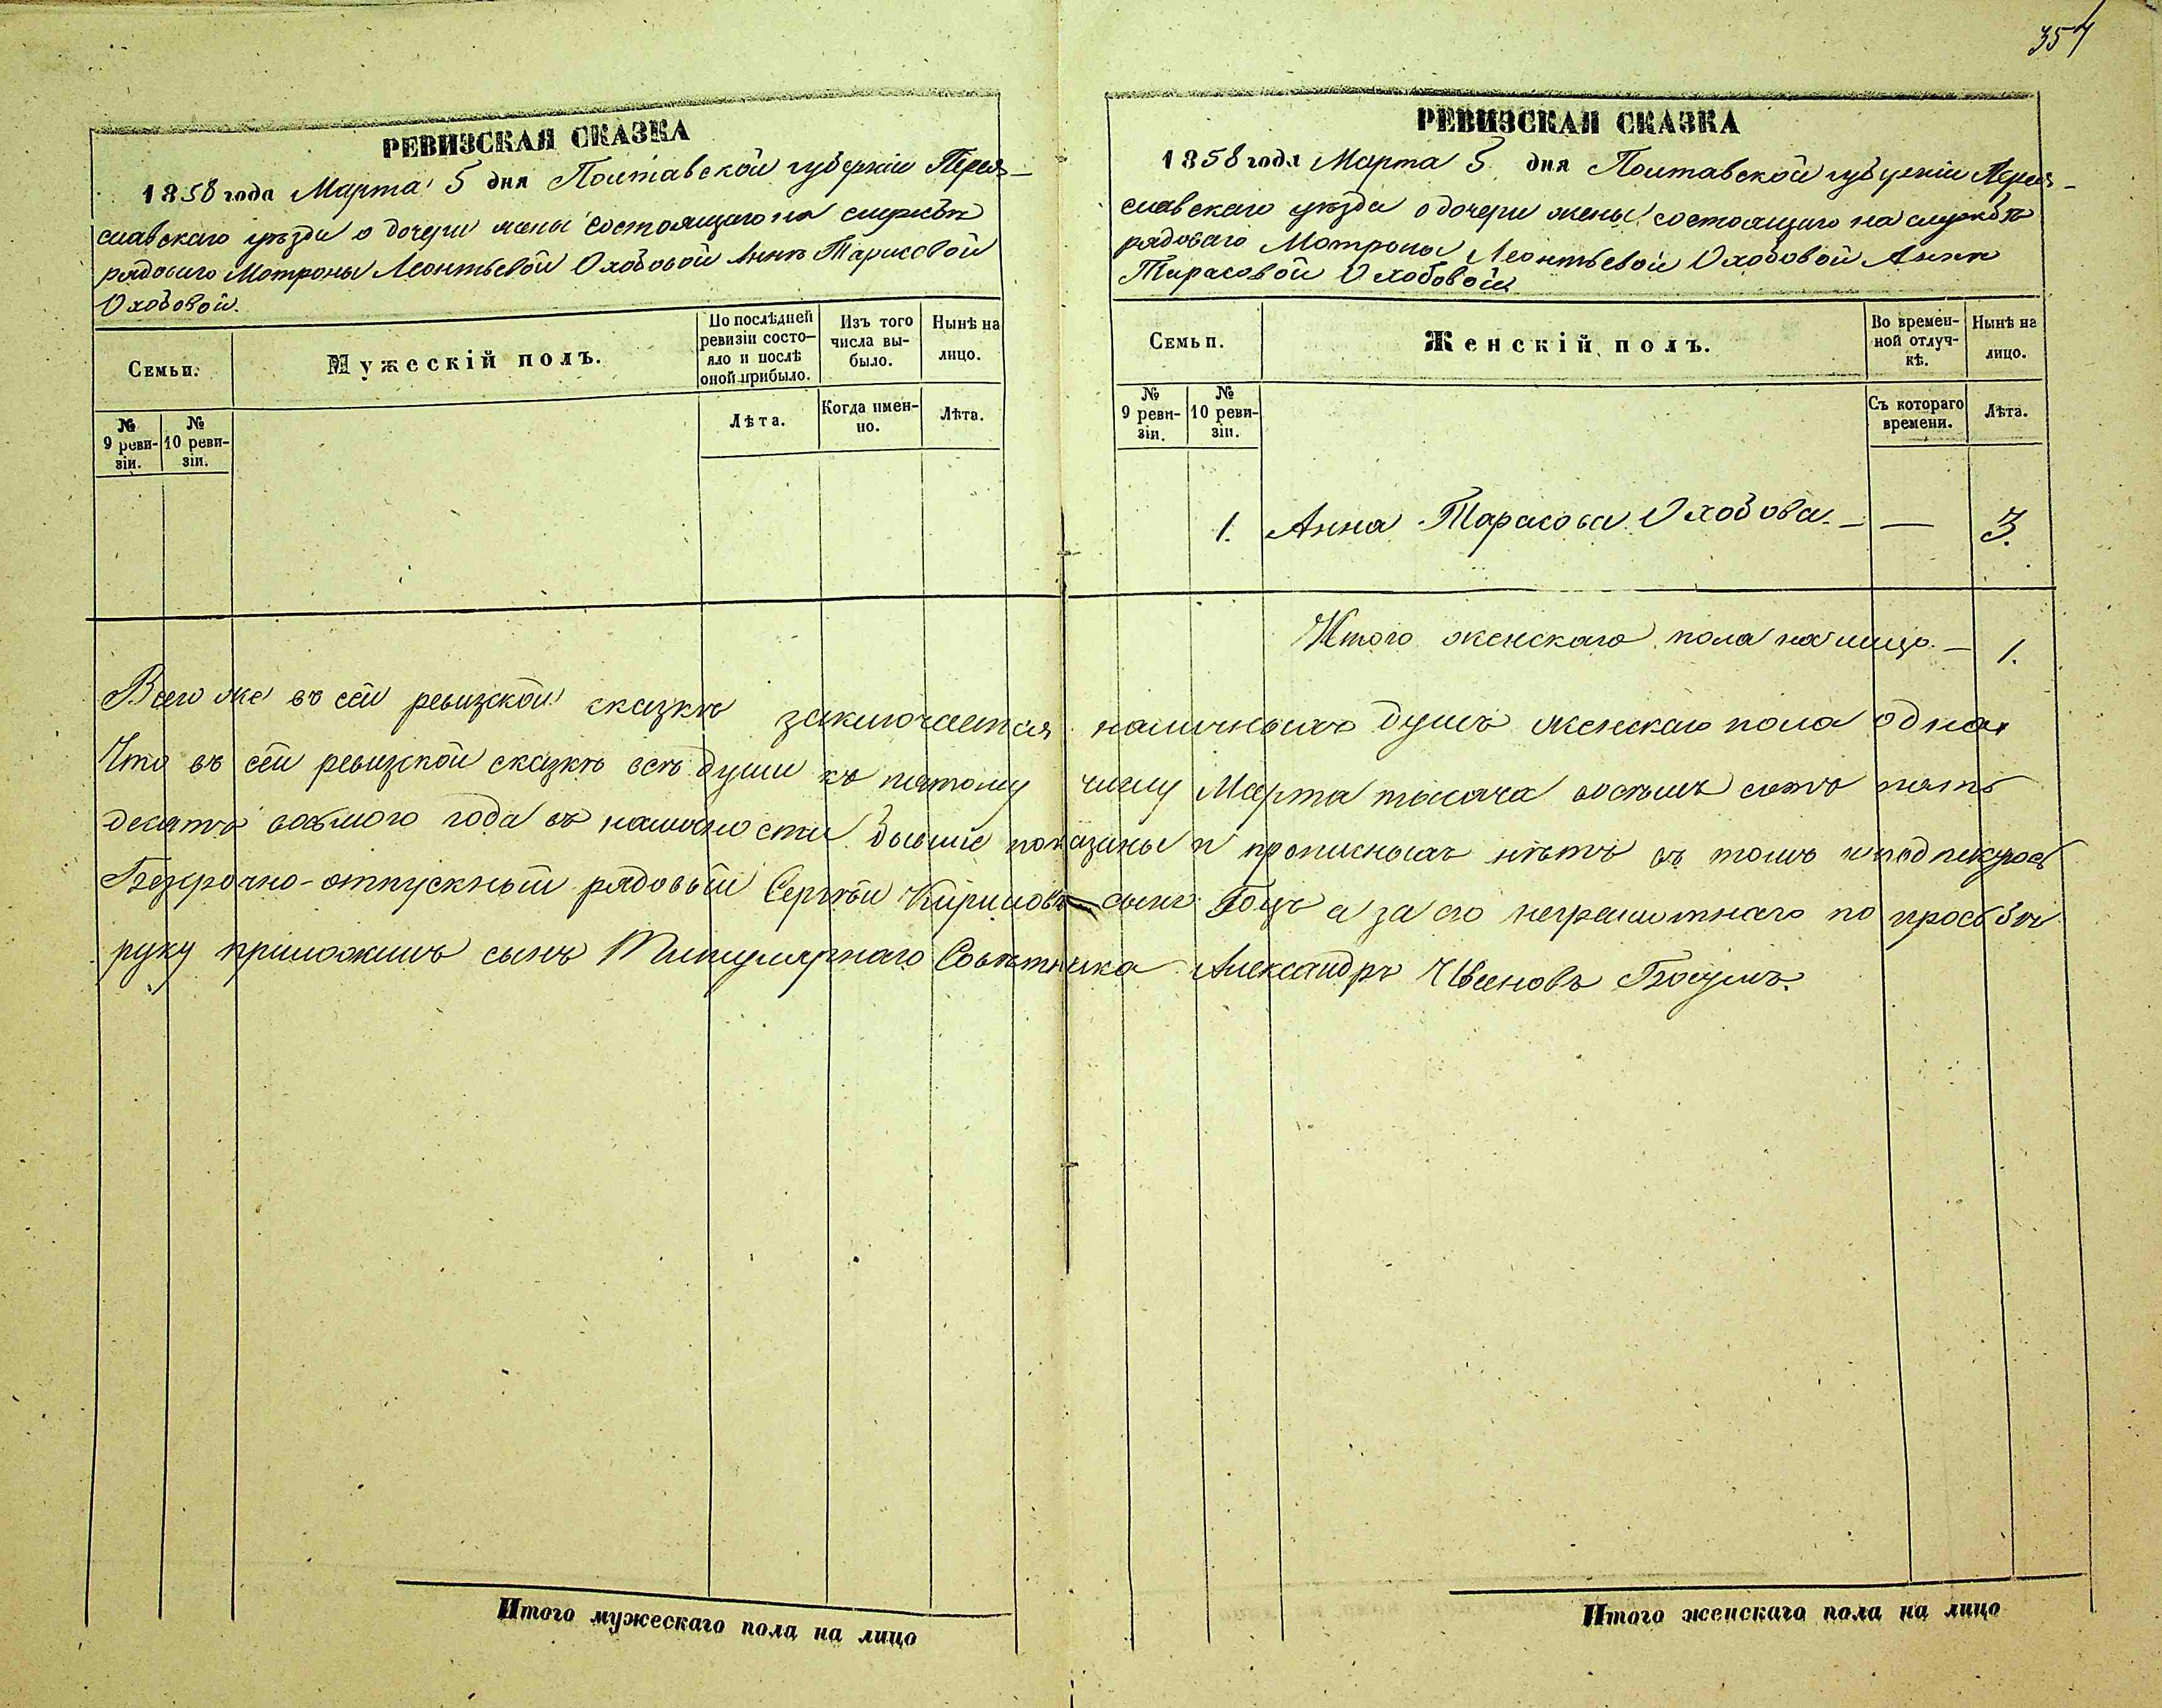 354
РЕВИЗСКАЯ СКАЗКА
1858 года Марта 5 дня Полтавской губерніи Перея-
славскаго уѣзда о дочери жены состоящаго на службѣ
рядоваго Мотроны Леонтьевой Охобовой Аннѣ Тарасовой
Охобовой.
Семьи.
Мужескій полъ.
По послѣдней
ревизіи состо-
яло и послѣ
оной прибыло.
Изъ того
числа вы-
было.
Нынѣ на
лицо.
№
9 реви-
зіи.
№
10 реви-
зіи.
Лѣта.
Когда имен-
но.
Лѣта.
РЕВИЗСКАЯ СКАЗКА
1858 года Марта 5 дня Полтавской губерніи Перея-
славскаго уѣзда о дочери жены состоящаго на службѣ
рядоваго Мотроны Леонтьевой Охобовой Аннѣ
Тарасовой Охобовой
Семьи.
Женскій полъ.
Во времен-
ной отлуч-
кѣ.
Нынѣ на
лицо.
№
9 реви-
зіи.
№
10 реви-
зіи.
Съ котораго
времени.
Лѣта.
1. Анна Тарасова Охобова. — — 3.
Итого женскаго пола на лицо — 1.
Всего же въ сей ревизской сказкѣ заключается наличныхъ душъ женскаго пола одна.
Что въ сей ревизской сказкѣ всѣ души къ пятому числу Марта тысяча восемь сотъ пять
десятъ восьмого года въ наличности бывшіе показаны и прописныхъ нѣтъ въ томъ и подписуюсь
Безсрочно-отпускный рядовый Сергѣй Кириловъ сынъ Гоцъ а за его неграмотнаго по прозьбѣ
руку приложилъ сынъ Титулярнаго Совѣтника Александръ Ивановъ
Итого мужескаго пола на лицо
Итого женскаго пола на лицо